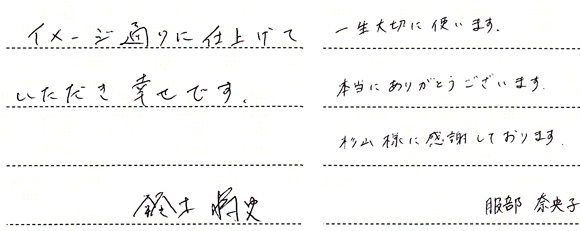 イメージ通りに仕上げて
いただき幸せです。
鈴木
一生大切に使います。
本当にありがとうございます。
杉山様に感謝しております。
服部 奈央子